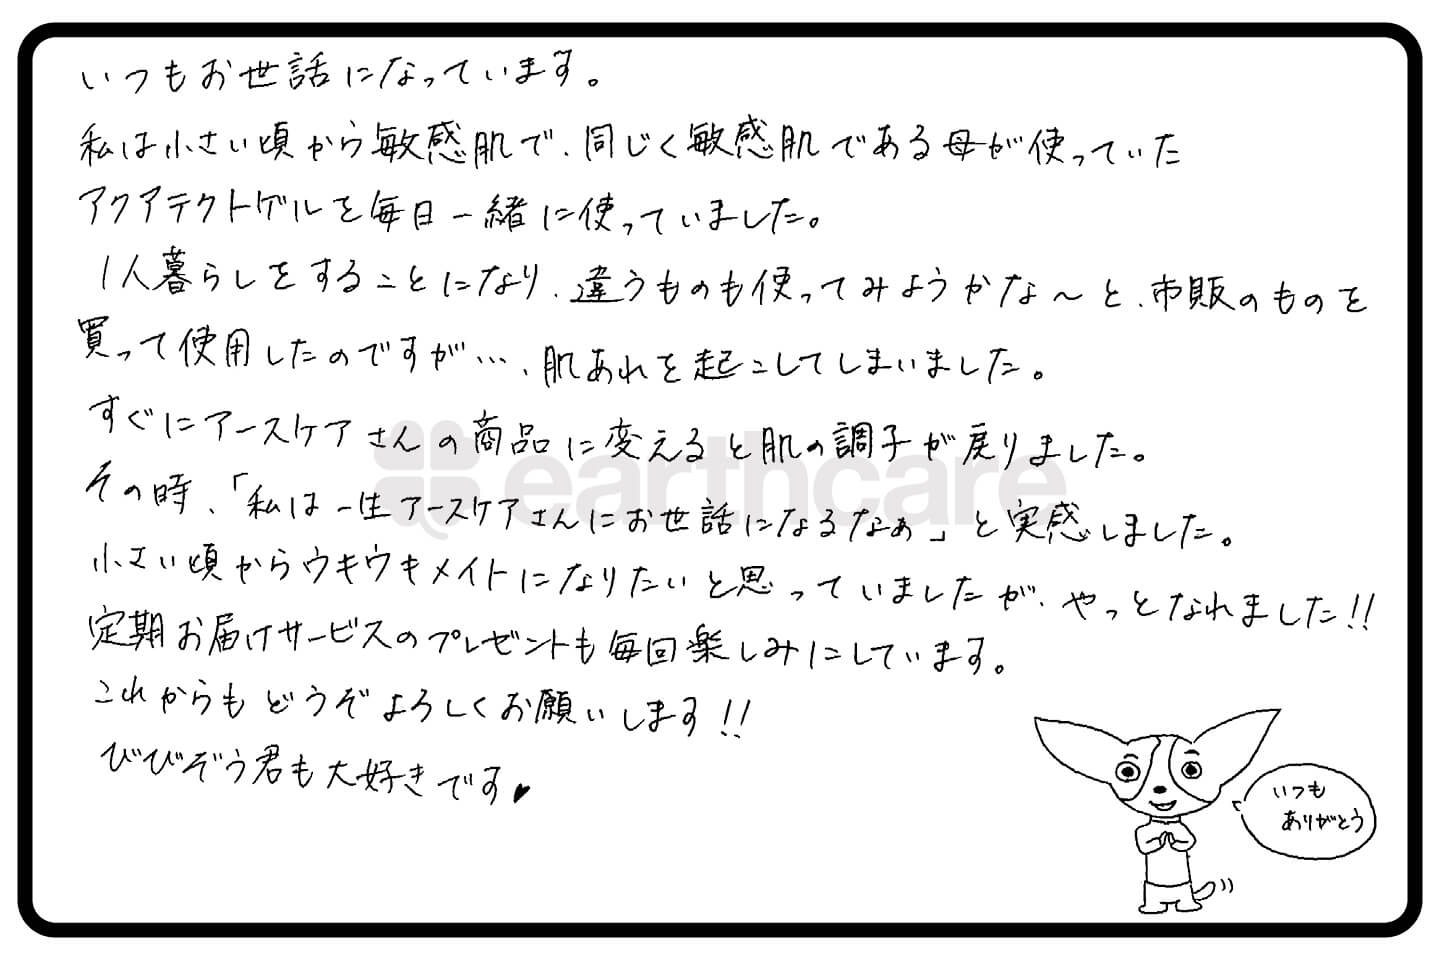 いつもお世話になっています。
私は小さい頃から敏感肌で、同じく敏感肌である母が使っていた
アクアテクトゲルを毎日一緒に使っていました。
1人暮らしをすることになり、違うものも使ってみようかな〜と、市販のものを
買って使用したのですが…、肌あれを起こしてしまいました。
すぐにアースケアさんの商品に変えると肌の調子が戻りました。
earthcare
その時、「私は一生アースケアさんにお世話になるなぁ」と実感しました。
小さい頃からウキウキメイトになりたいと思っていましたが、やっとなれました!!
定期お届けサービスのプレゼントも毎回楽しみにしています。
これからもどうぞよろしくお願いします!!
びびぞう君も大好きです♥
いつも
ありがとう